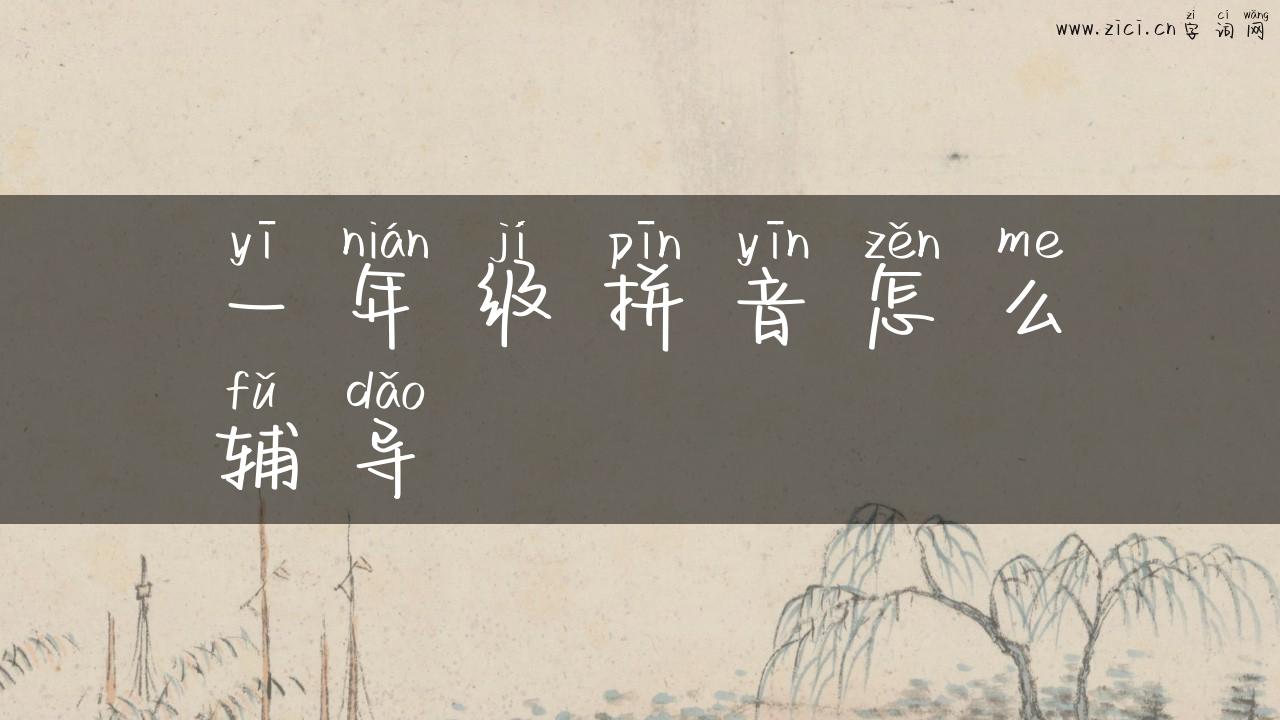 zì cí wǎng
www.zici.cn 字词网
yī nián jí pīn yīn zěn me
一年级拼音怎么
fǔ dǎo
辅导